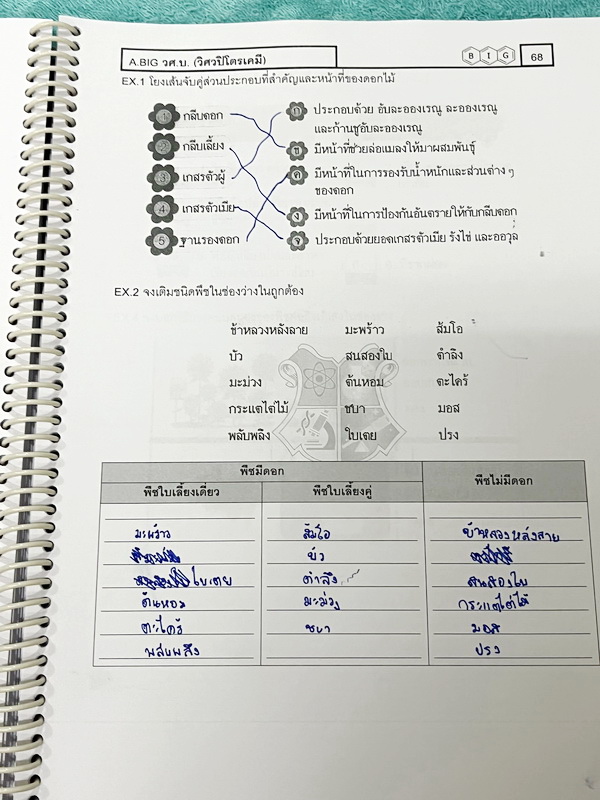 A.BIG วศ.บ. (วิศวปิโตรเคมี) B I G 68
EX.1 โยงเส้นจับคู่ส่วนประกอบที่สำคัญและหน้าที่ของดอกไม้
1 กลีบดอก
ก ประกอบด้วย อับละอองเรณู ละอองเรณู
และก้านชูอับละอองเรณู
2 กลีบเลี้ยง
ข มีหน้าที่ช่วยล่อแมลงให้มาผสมพันธุ์
3 เกสรตัวผู้
ค มีหน้าที่ในการรองรับน้ำหนักและส่วนต่าง ๆ
ของดอก
4 เกสรตัวเมีย
ง มีหน้าที่ในการป้องกันอันตรายให้กับกลีบดอก
5 ฐานรองดอก
จ ประกอบด้วยยอดเกสรตัวเมีย รังไข่ และออวุล
EX.2 จงเติมชนิดพืชในช่องว่างในถูกต้อง
ข้าหลวงหลังลาย มะพร้าว ส้มโอ
บัว สนสองใบ ตำลึง
มะม่วง ต้นหอม ตะไคร้
กระแตไต่ไม้ ชบา มอส
พลับพลึง ใบเตย ปรง
พืชมีดอก พืชไม่มีดอก
พืชใบเลี้ยงเดี่ยว พืชใบเลี้ยงคู่
มะพร้าว ส้มโอ ข้าหลวงหลังลาย
บัว
ใบเตย ตำลึง สนสองใบ
ต้นหอม มะม่วง กระแตไต่ไม้
ตะไคร้ ชบา มอส
พลับพลึง ปรง